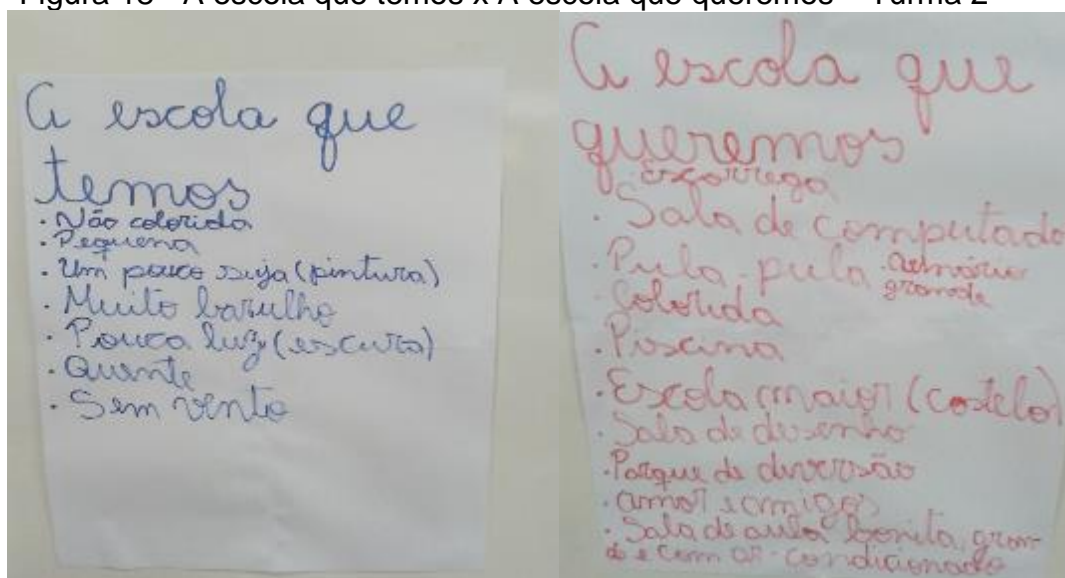 Figura 18 - A escola que temos x A escola que queremos - Turma 2
A escola que
temos
· Não colorida
· Pequena
· Um pouco suja (pintura)
· Muito barulho
· Pouca luz (escura)
· Quente
· Sem vento
A escola que
queremos
Escorrego
· Sala de computado
· Pula-pula · armário
grande
· Colorida
· Piscina
· Escola maior (castelo)
· Sala de desenho
· Parque de diversão
· amor e amigos
· Sala de aula bonita, gran-
de e com ar-condicionado